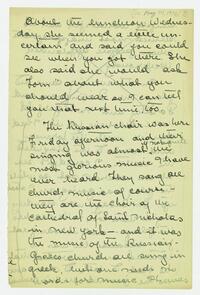 About the luncheon Wednes-
day she seemed a little un-
certain and said you could
see when you got there She
also said she would ask
Tom about what you
should wear so I can tell
you that next time, too
The Russian choir was here
Friday afternoon and their
singing was almost the
most glorious music I have
ever heard. They sang all
church music of course -
they are the choir of the
cathedral of Saint Nicholas
in New York - and it was
the music of the Russian-
Greek church all sung in
Greek,